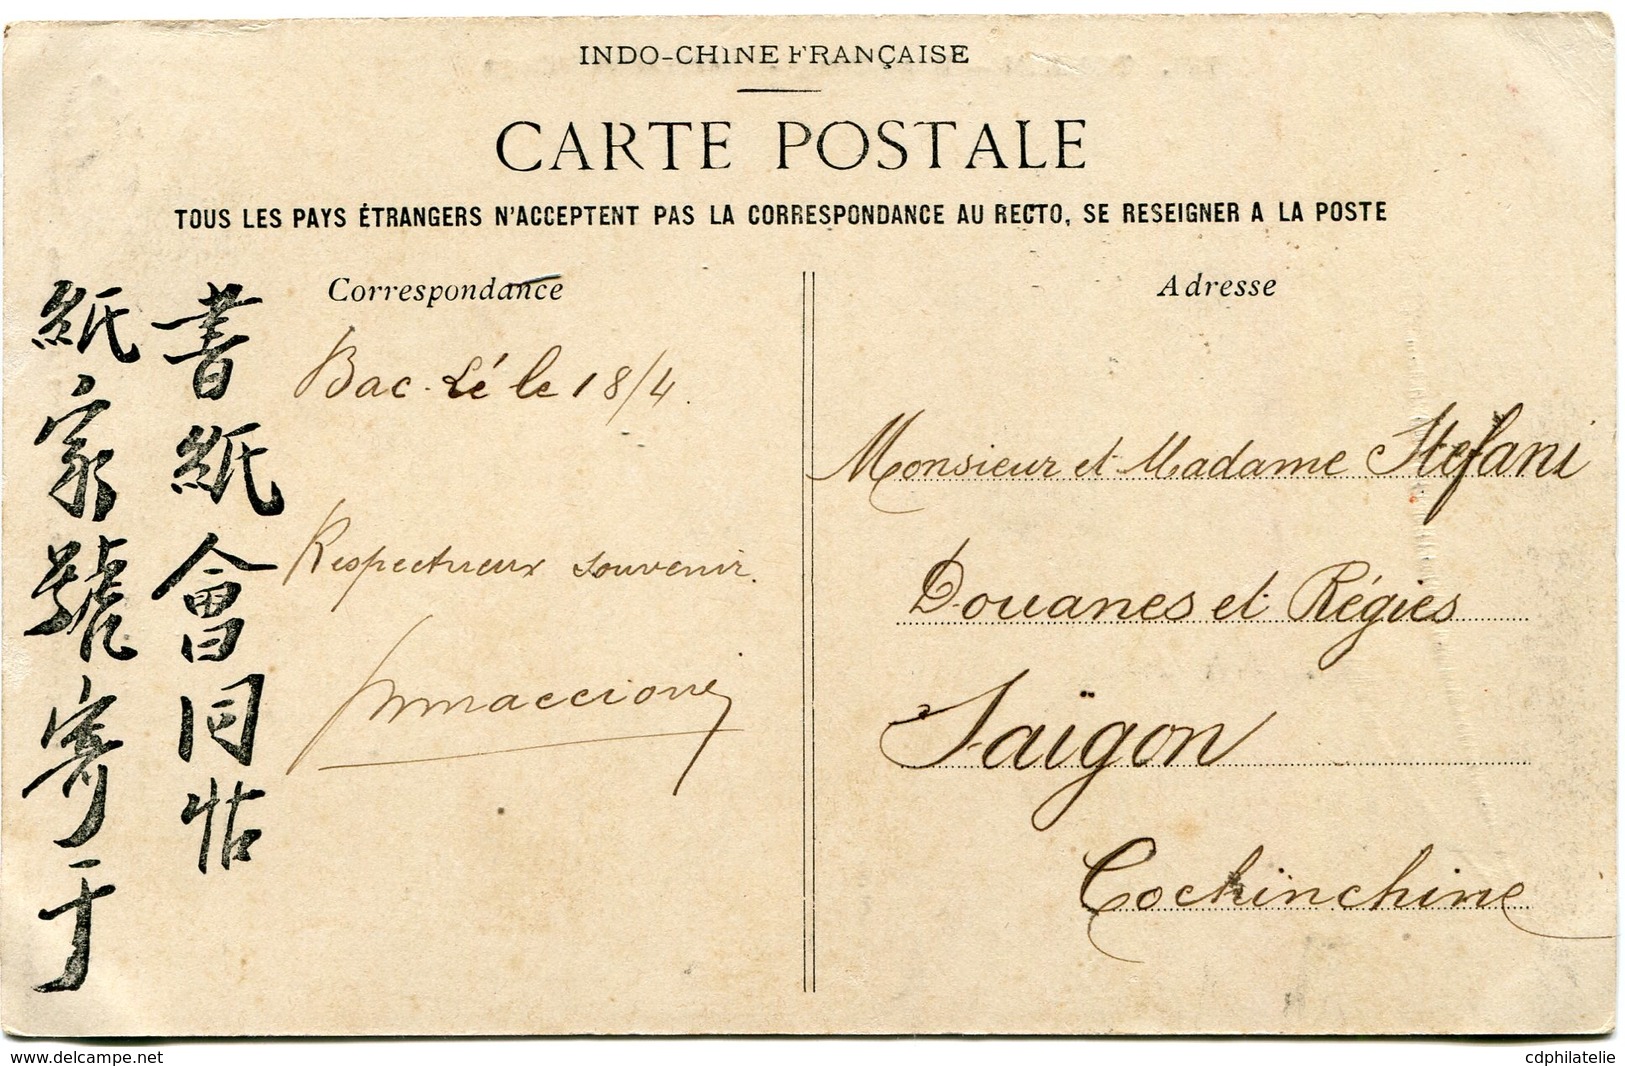 INDO-CHINE FRANÇAISE
CARTE POSTALE
TOUS LES PAYS ÉTRANGERS N'ACCEPTENT PAS LA CORRESPONDANCE AU RECTO, SE RESEIGNER A LA POSTE
書紙會同帖
紙家號寄于
Correspondance
Bac-Lé le 18/4.
Respectueux souvenir.
Adresse
Monsieur et Madame Stefani
Douanes et Régies
Saïgon
Cochinchine
www.delcampe.net
cdphilatelie